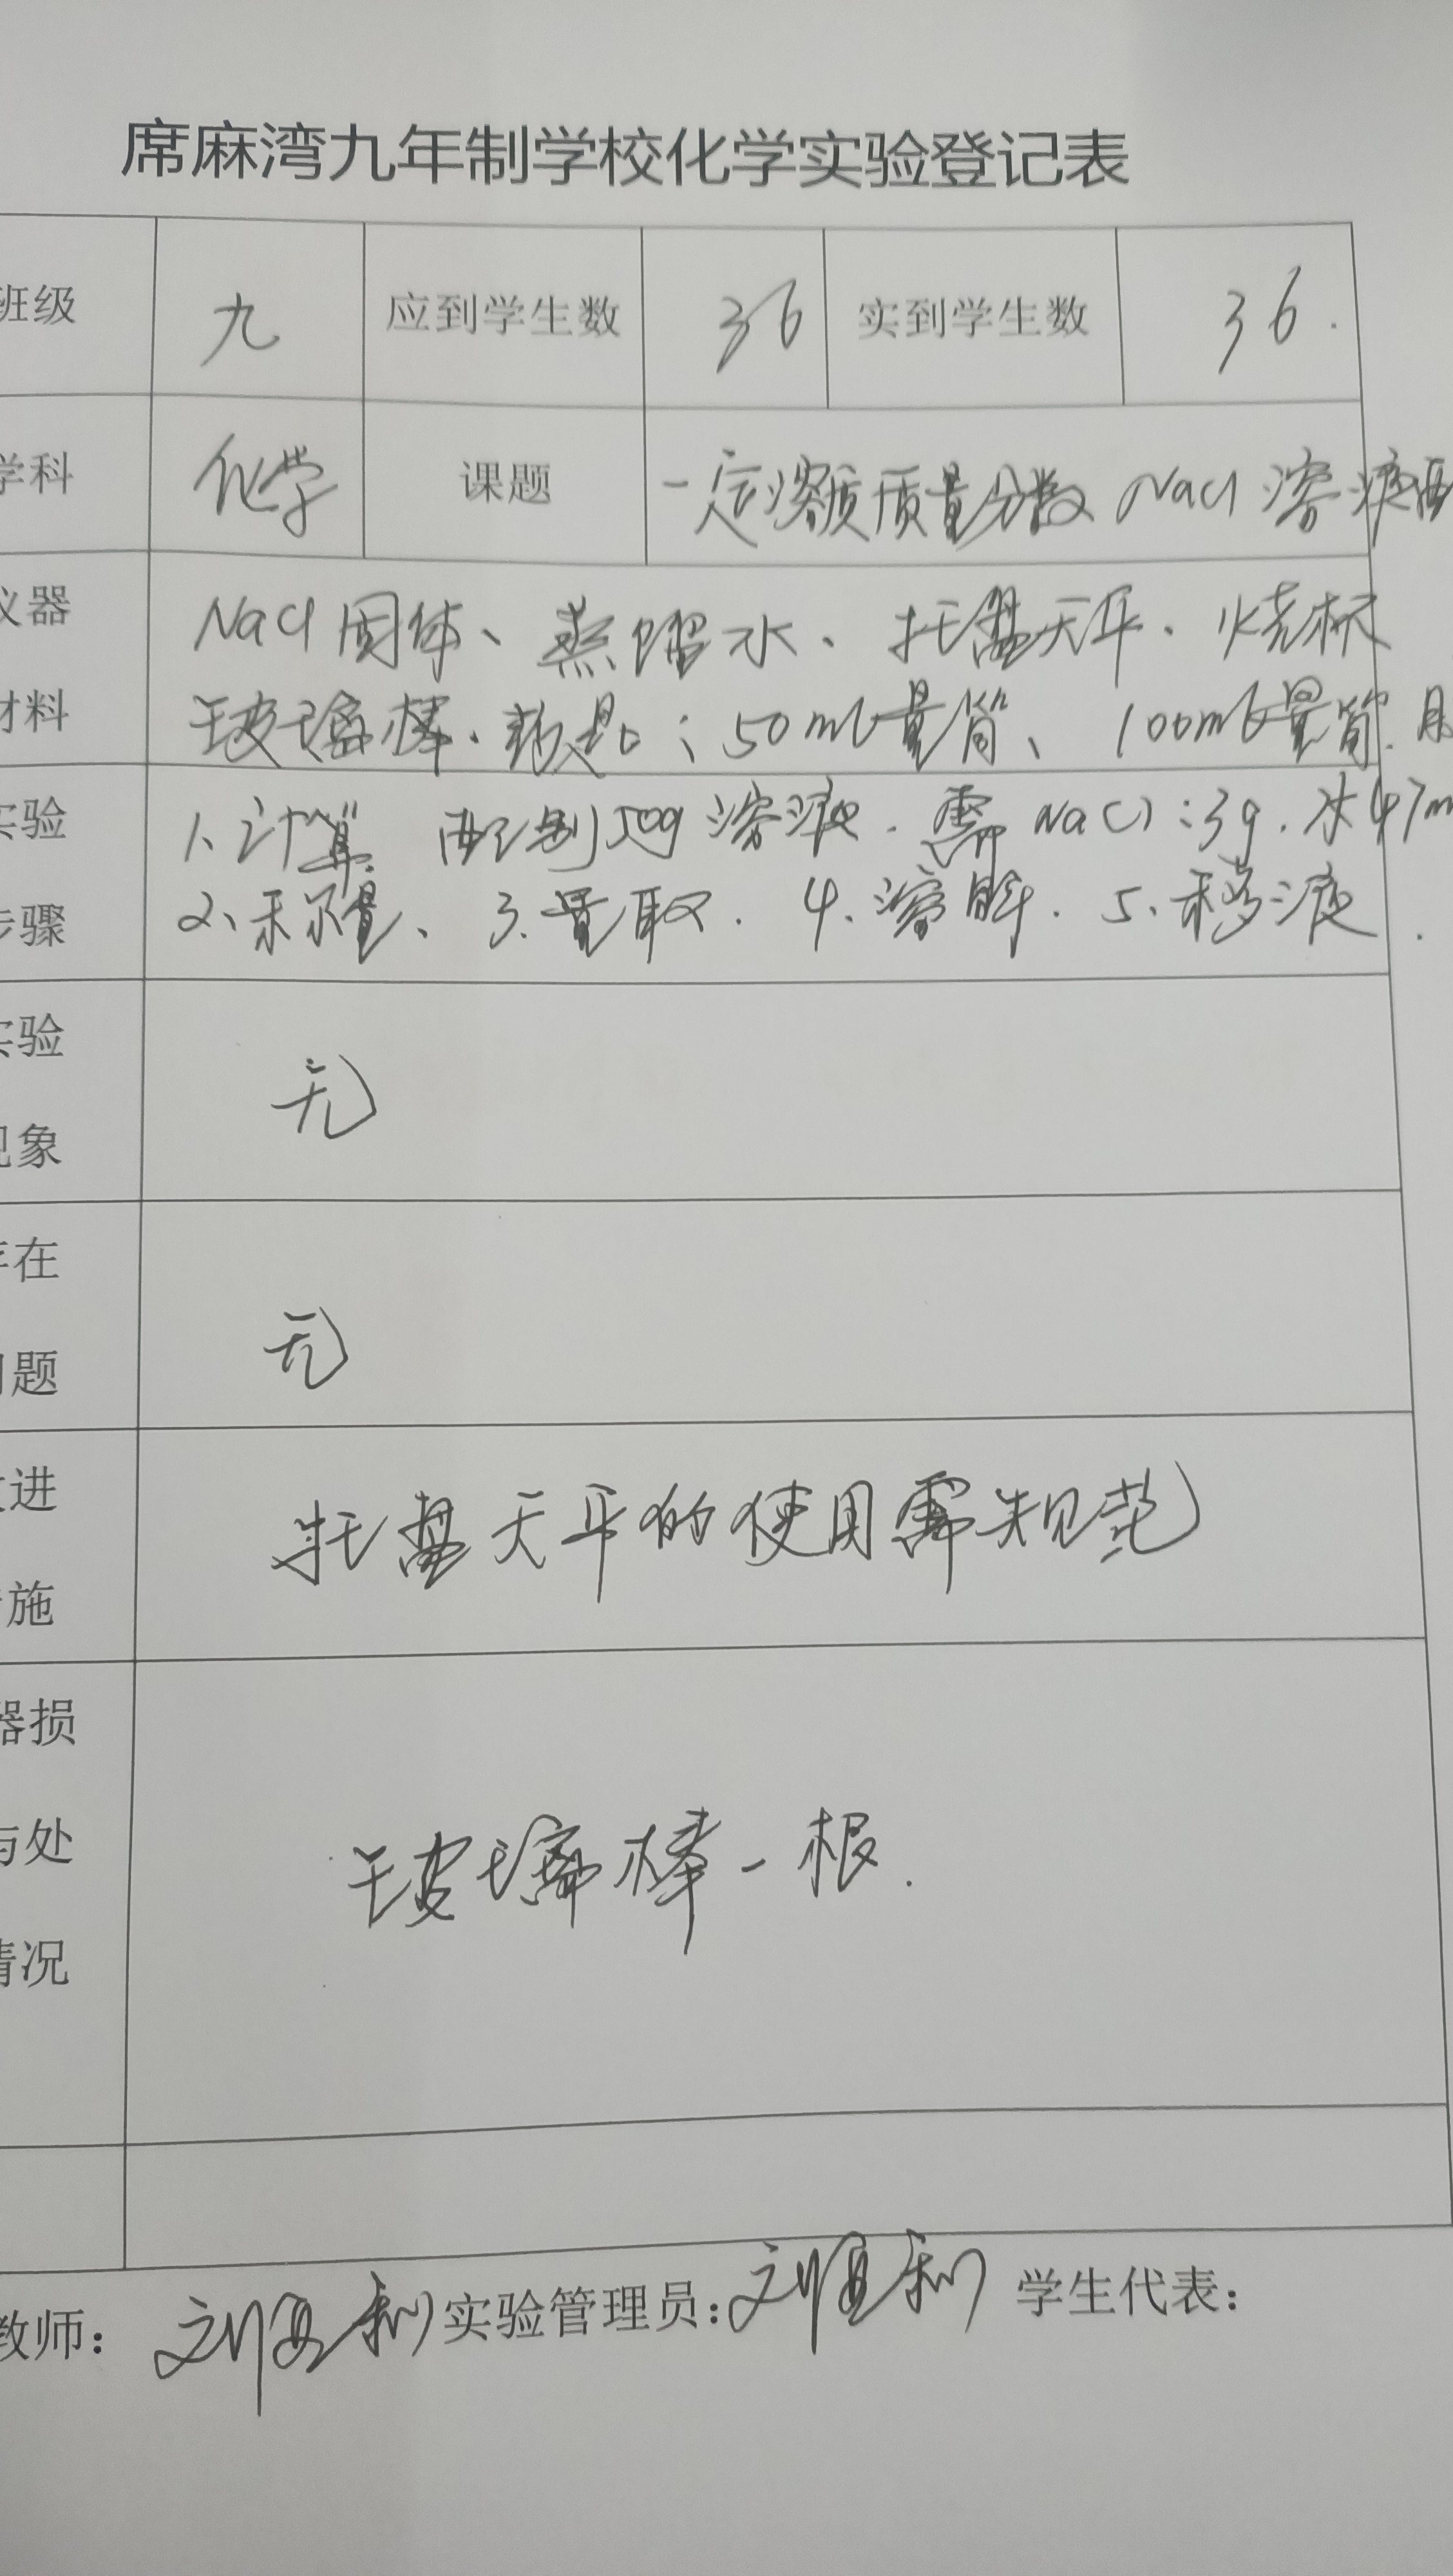 席麻湾九年制学校化学实验登记表
班级 九 应到学生数 36 实到学生数 36.
学科 化学 课题 一定溶质质量分数 NaCl 溶液配
仪器 NaCl 固体、蒸馏水、托盘天平、烧杯
材料 玻璃棒、药匙; 50ml量筒、100ml量筒.
实验 1、计算. 配制50g溶液. 需 NaCl:3g. 水47m
步骤 2、称量、3.量取. 4.溶解. 5、移液.
实验
现象 无
存在
问题 无
改进
措施 托盘天平的使用需规范
器损
与处 玻璃棒一根.
情况
教师: 实验管理员: 学生代表: